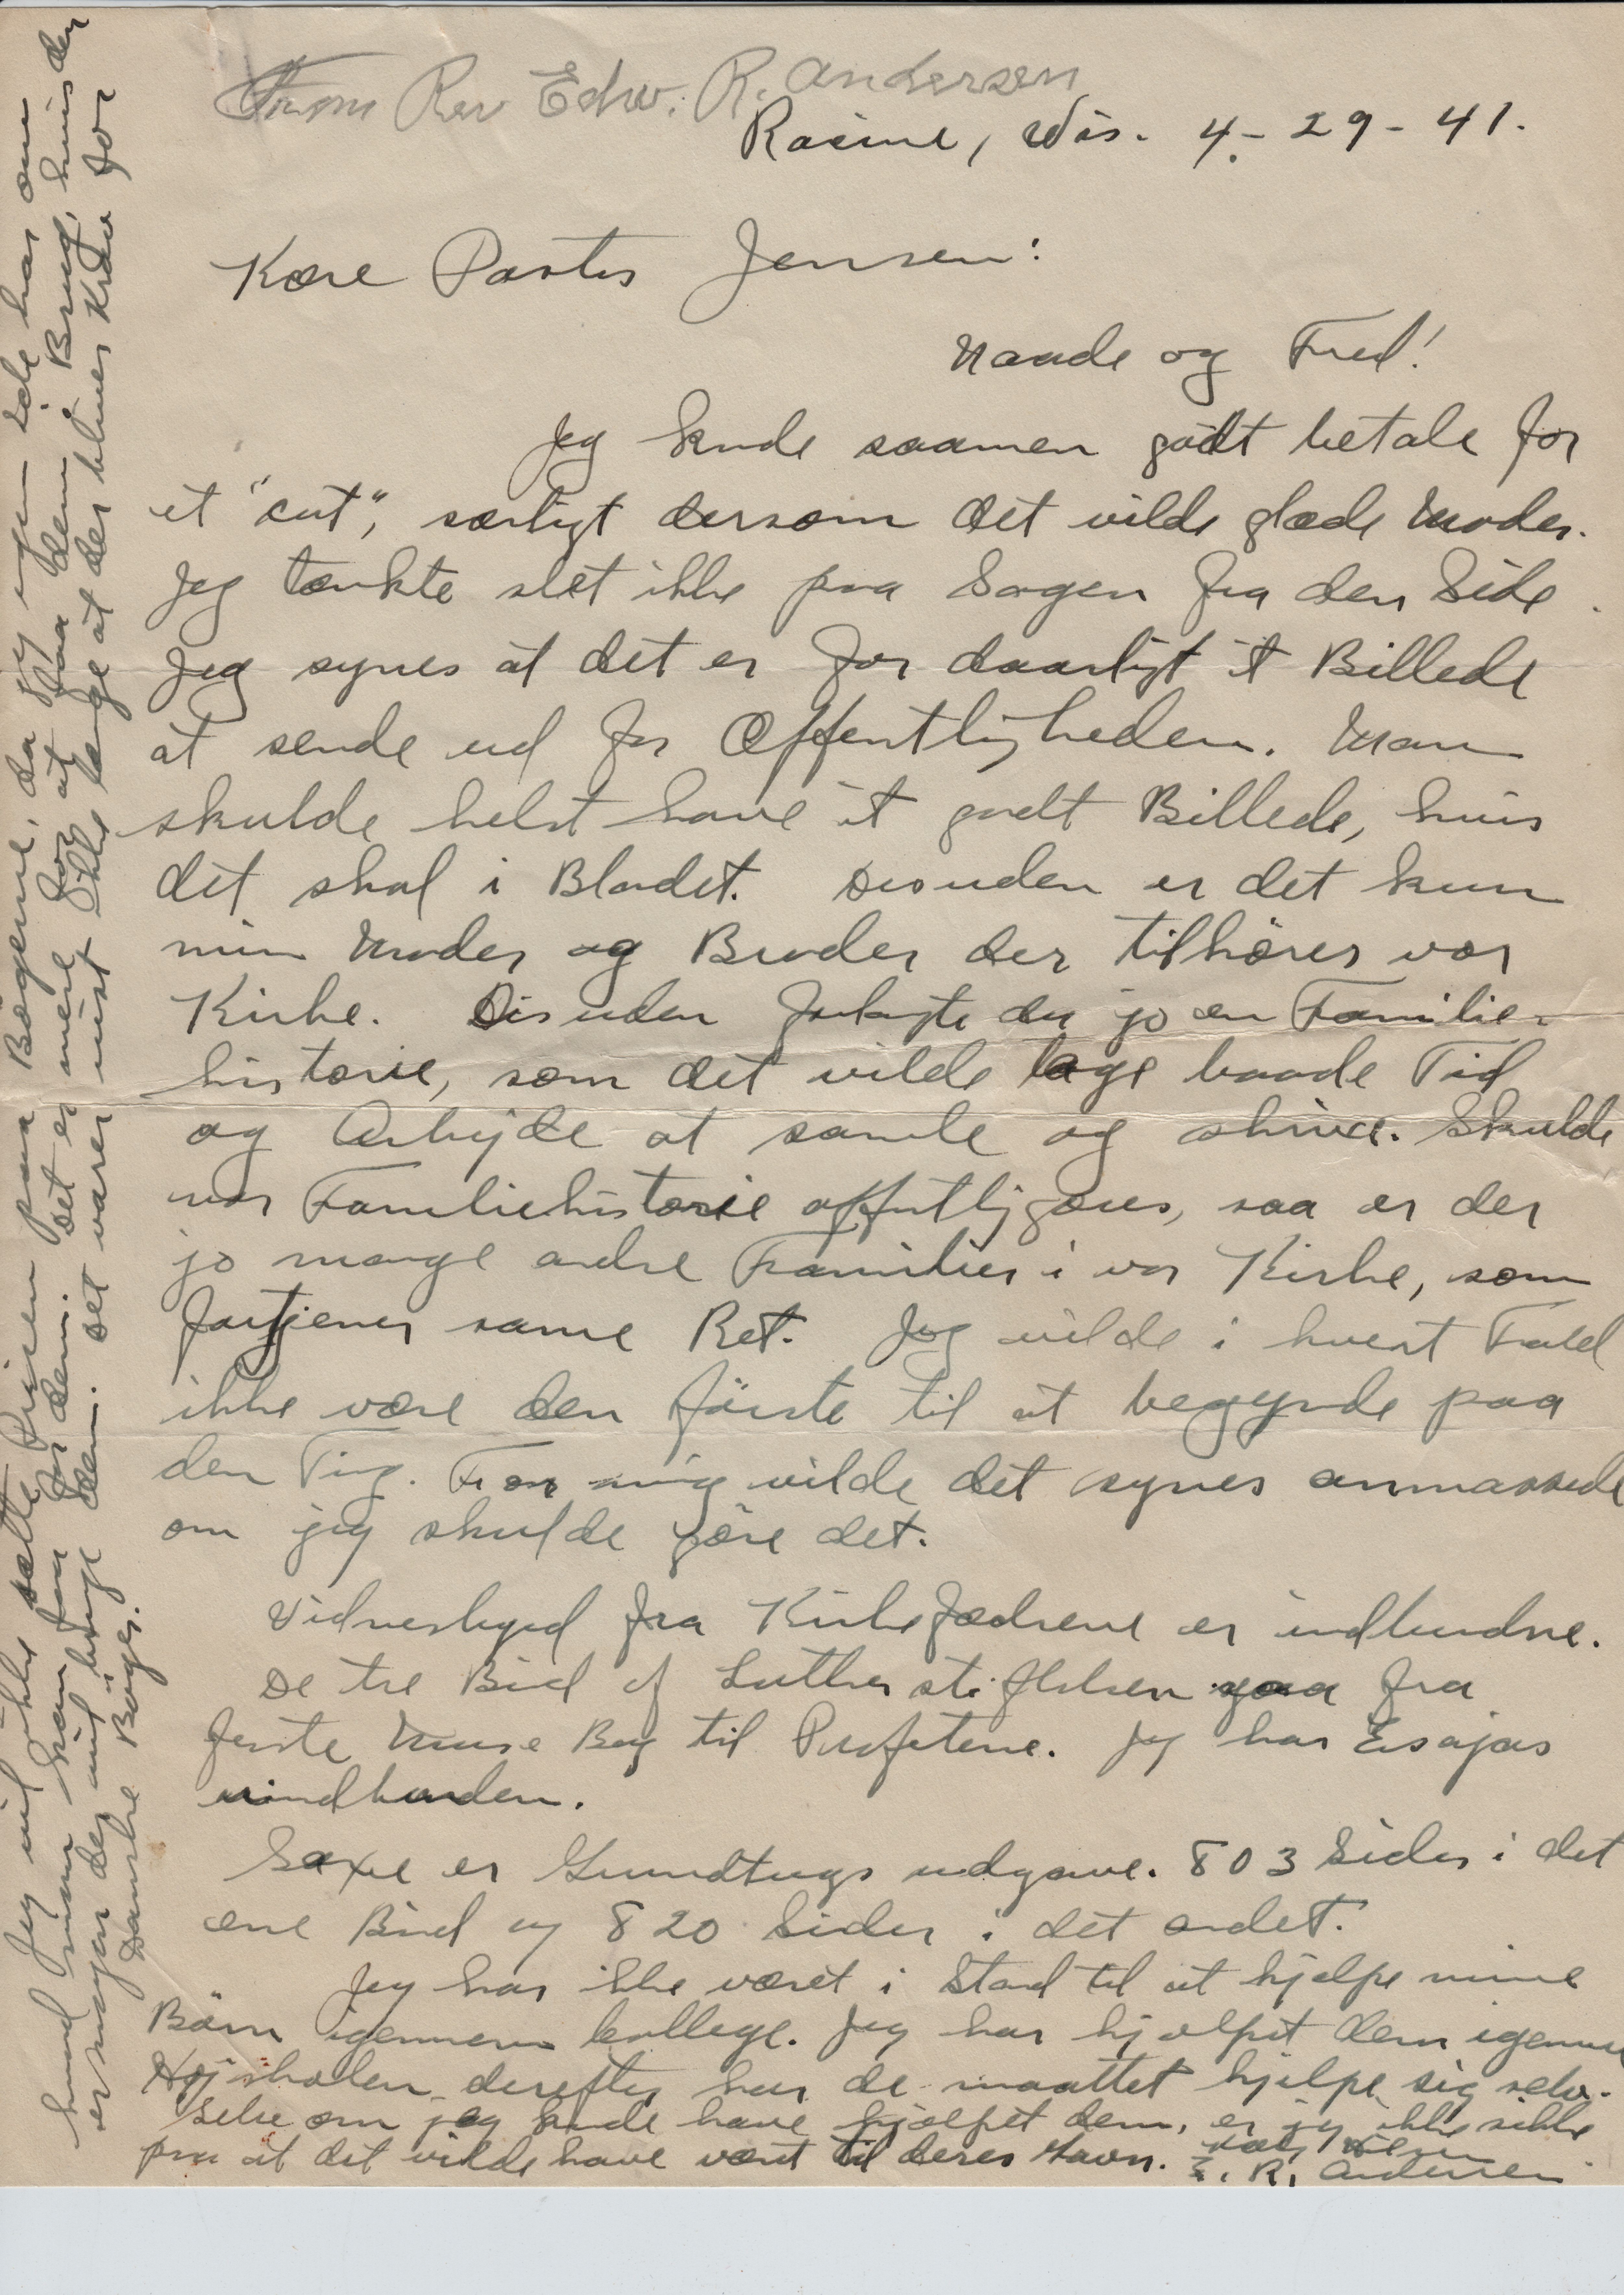 From Rev Edw. R. Andersen
Racine, Wis. 4-29-41.
Kære Pastor Jensen:
Naade og Fred!
Jeg kunde saamen godt betale for
et "cut", særligt dersom det vilde glæde Moder.
Jeg tænkte slet ikke paa Sagen fra den Side.
Jeg synes at det er for daarligt et Billede
at sende ud for Offentligheden. Man
skulde helst have et godt Billede, hvis
det skal i Bladet. Desuden er det kun
min Moder og Broder der tilhører vor
Kirke. Desuden forlangte du jo en Familie-
historie, som det vilde tage baade Tid
og Arbejde at samle og skrive. Skulde
vor Familiehistorie offentligjøres, saa er der
jo mange andre Familier i vor Kirke, som
fortjener samme Ret. Jeg vilde i hvert Fald
ikke være den første til at begynde paa
den Ting. For mig vilde det synes anmassede
om jeg skulde gøre det.
Vidnesbyrd fra Kirkefædrene er indbundne.
De tre Bind af Lutherstiftelsen gaa fra
første Mose Bog til Profeterne. Jeg har Esajas
uindbunden.
Saxe er Grundtvigs udgave. 803 Sider i det
ene Bind og 820 Sider i det andet.
Jeg har ikke været i Stand til at hjælpe mine
Børn igennem kollege. Jeg har hjælpet dem igennem
Højskolen derefter har de maattet hjælpe sig selv.
Selv om jeg kunde have hjælpet dem, er jeg ikke sikker
paa at det vilde have været til deres Gavn.
E. R. Andersen
Jeg vil ikke sætte Prisen paa Bøgerne, da jeg ingen Ide har om
hvad man kan faa for dem. Det er mere for at faa dem i Brug, hvis der
er nogen der vil bruge dem. Det varer vist ikke længe at der bliver Krav for
Danske Bøger.